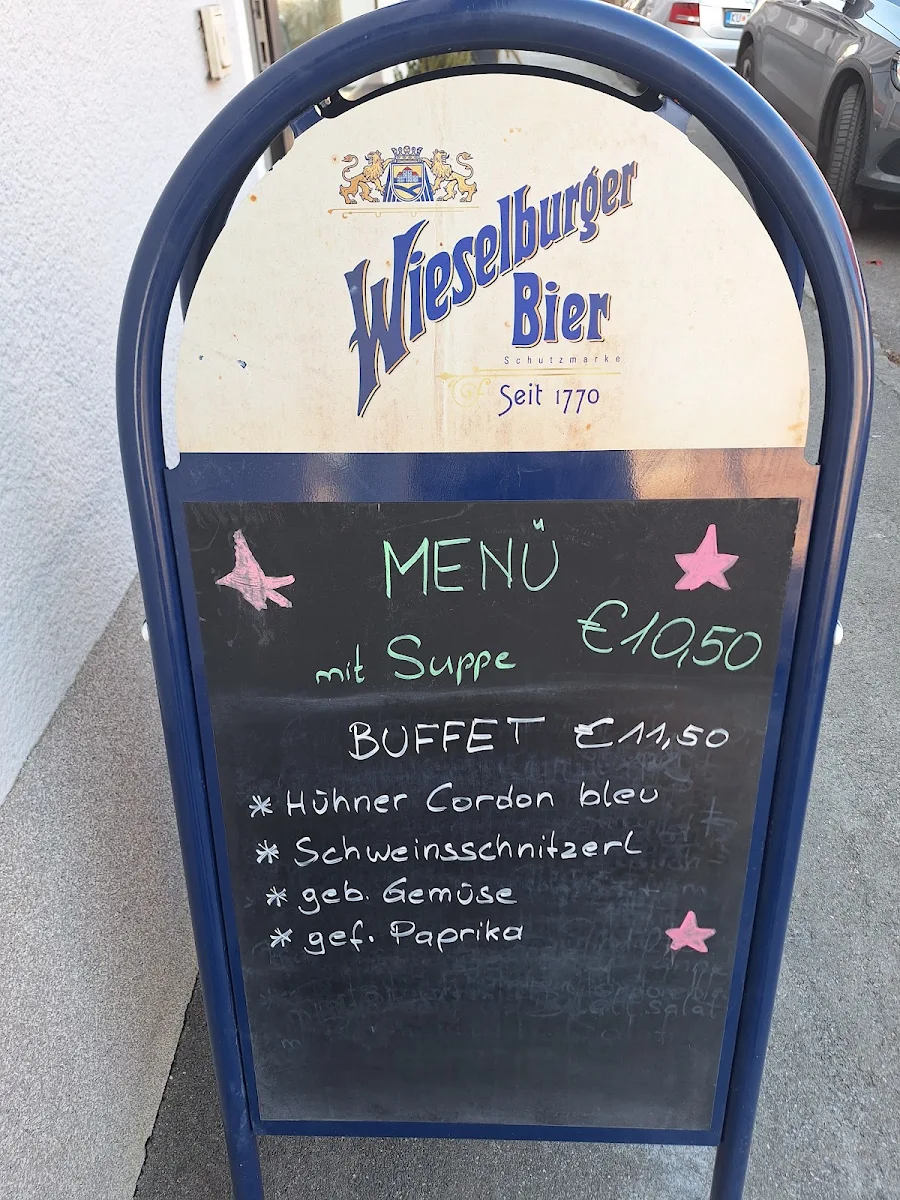 Wieselburger
Bier
Schutzmarke
Seit 1770
MENÜ
mit Suppe €10,50
BUFFET €11,50
* Hühner Cordon bleu
* Schweinsschnitzerl
* geb. Gemüse
* gef. Paprika